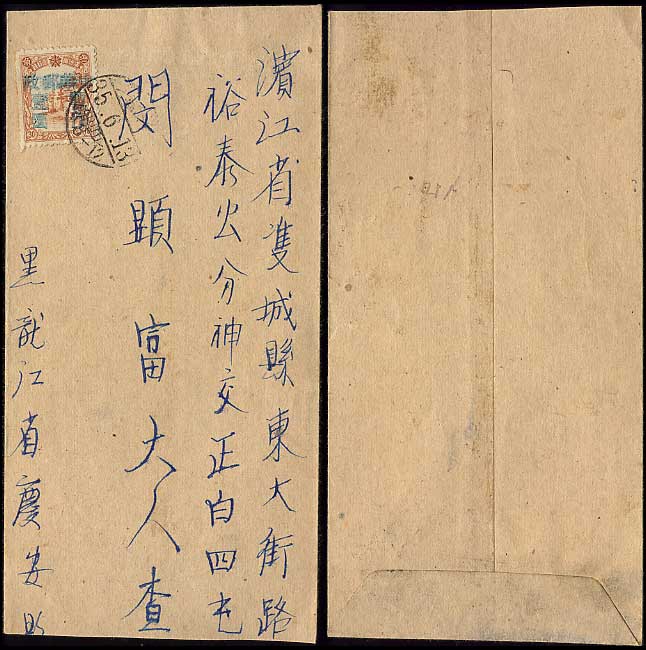 濱江省雙城縣東大街路
裕泰公分神交正白四屯
閔顯富大人查
黑龍江省慶安
35.6.13